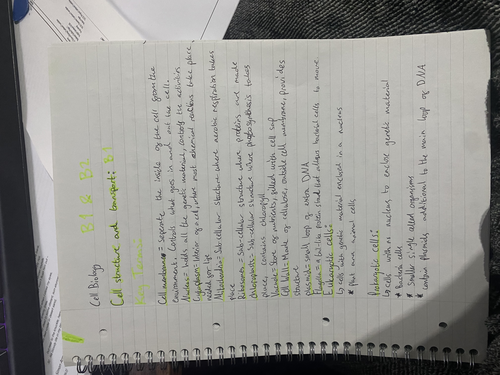 B1 & B2
Cell Biology
Cell structure and transport: B1
Key Terms:
Cell membrane = seperate the inside of the cell from the
environment. Controls what goes in and out the cell.
Nucleus = holds all the genetic material, controls the activities
Cytoplasm = interior of a cell, where most chemical reactions take place
needed for life
Mitochondria = Sub-cellular structure where aerobic respiration takes
place
Ribosomes = Sub-cellular structure where proteins are made
chloroplasts = Sub-cellular structure where photosynthesis takes
place, contains chlorophyll
Vacuole = Store of nutrients, filled with cell sap
Cell Wall = Made of cellulose, outside cell membrane, provides
structure
plasmid = small loop of extra DNA
Flagella = a tail-like protein strand that allows bacterial cells to move
Eukaryotic cells:
↳ cells with genetic material enclosed in a nucleus
* Plant and animal cells
Prokaryotic cells:
↳ cells with no nucleus to enclose genetic material
* Bacteria cells
* Smaller single celled organisms
* contain plasmids additional to the main loop of DNA